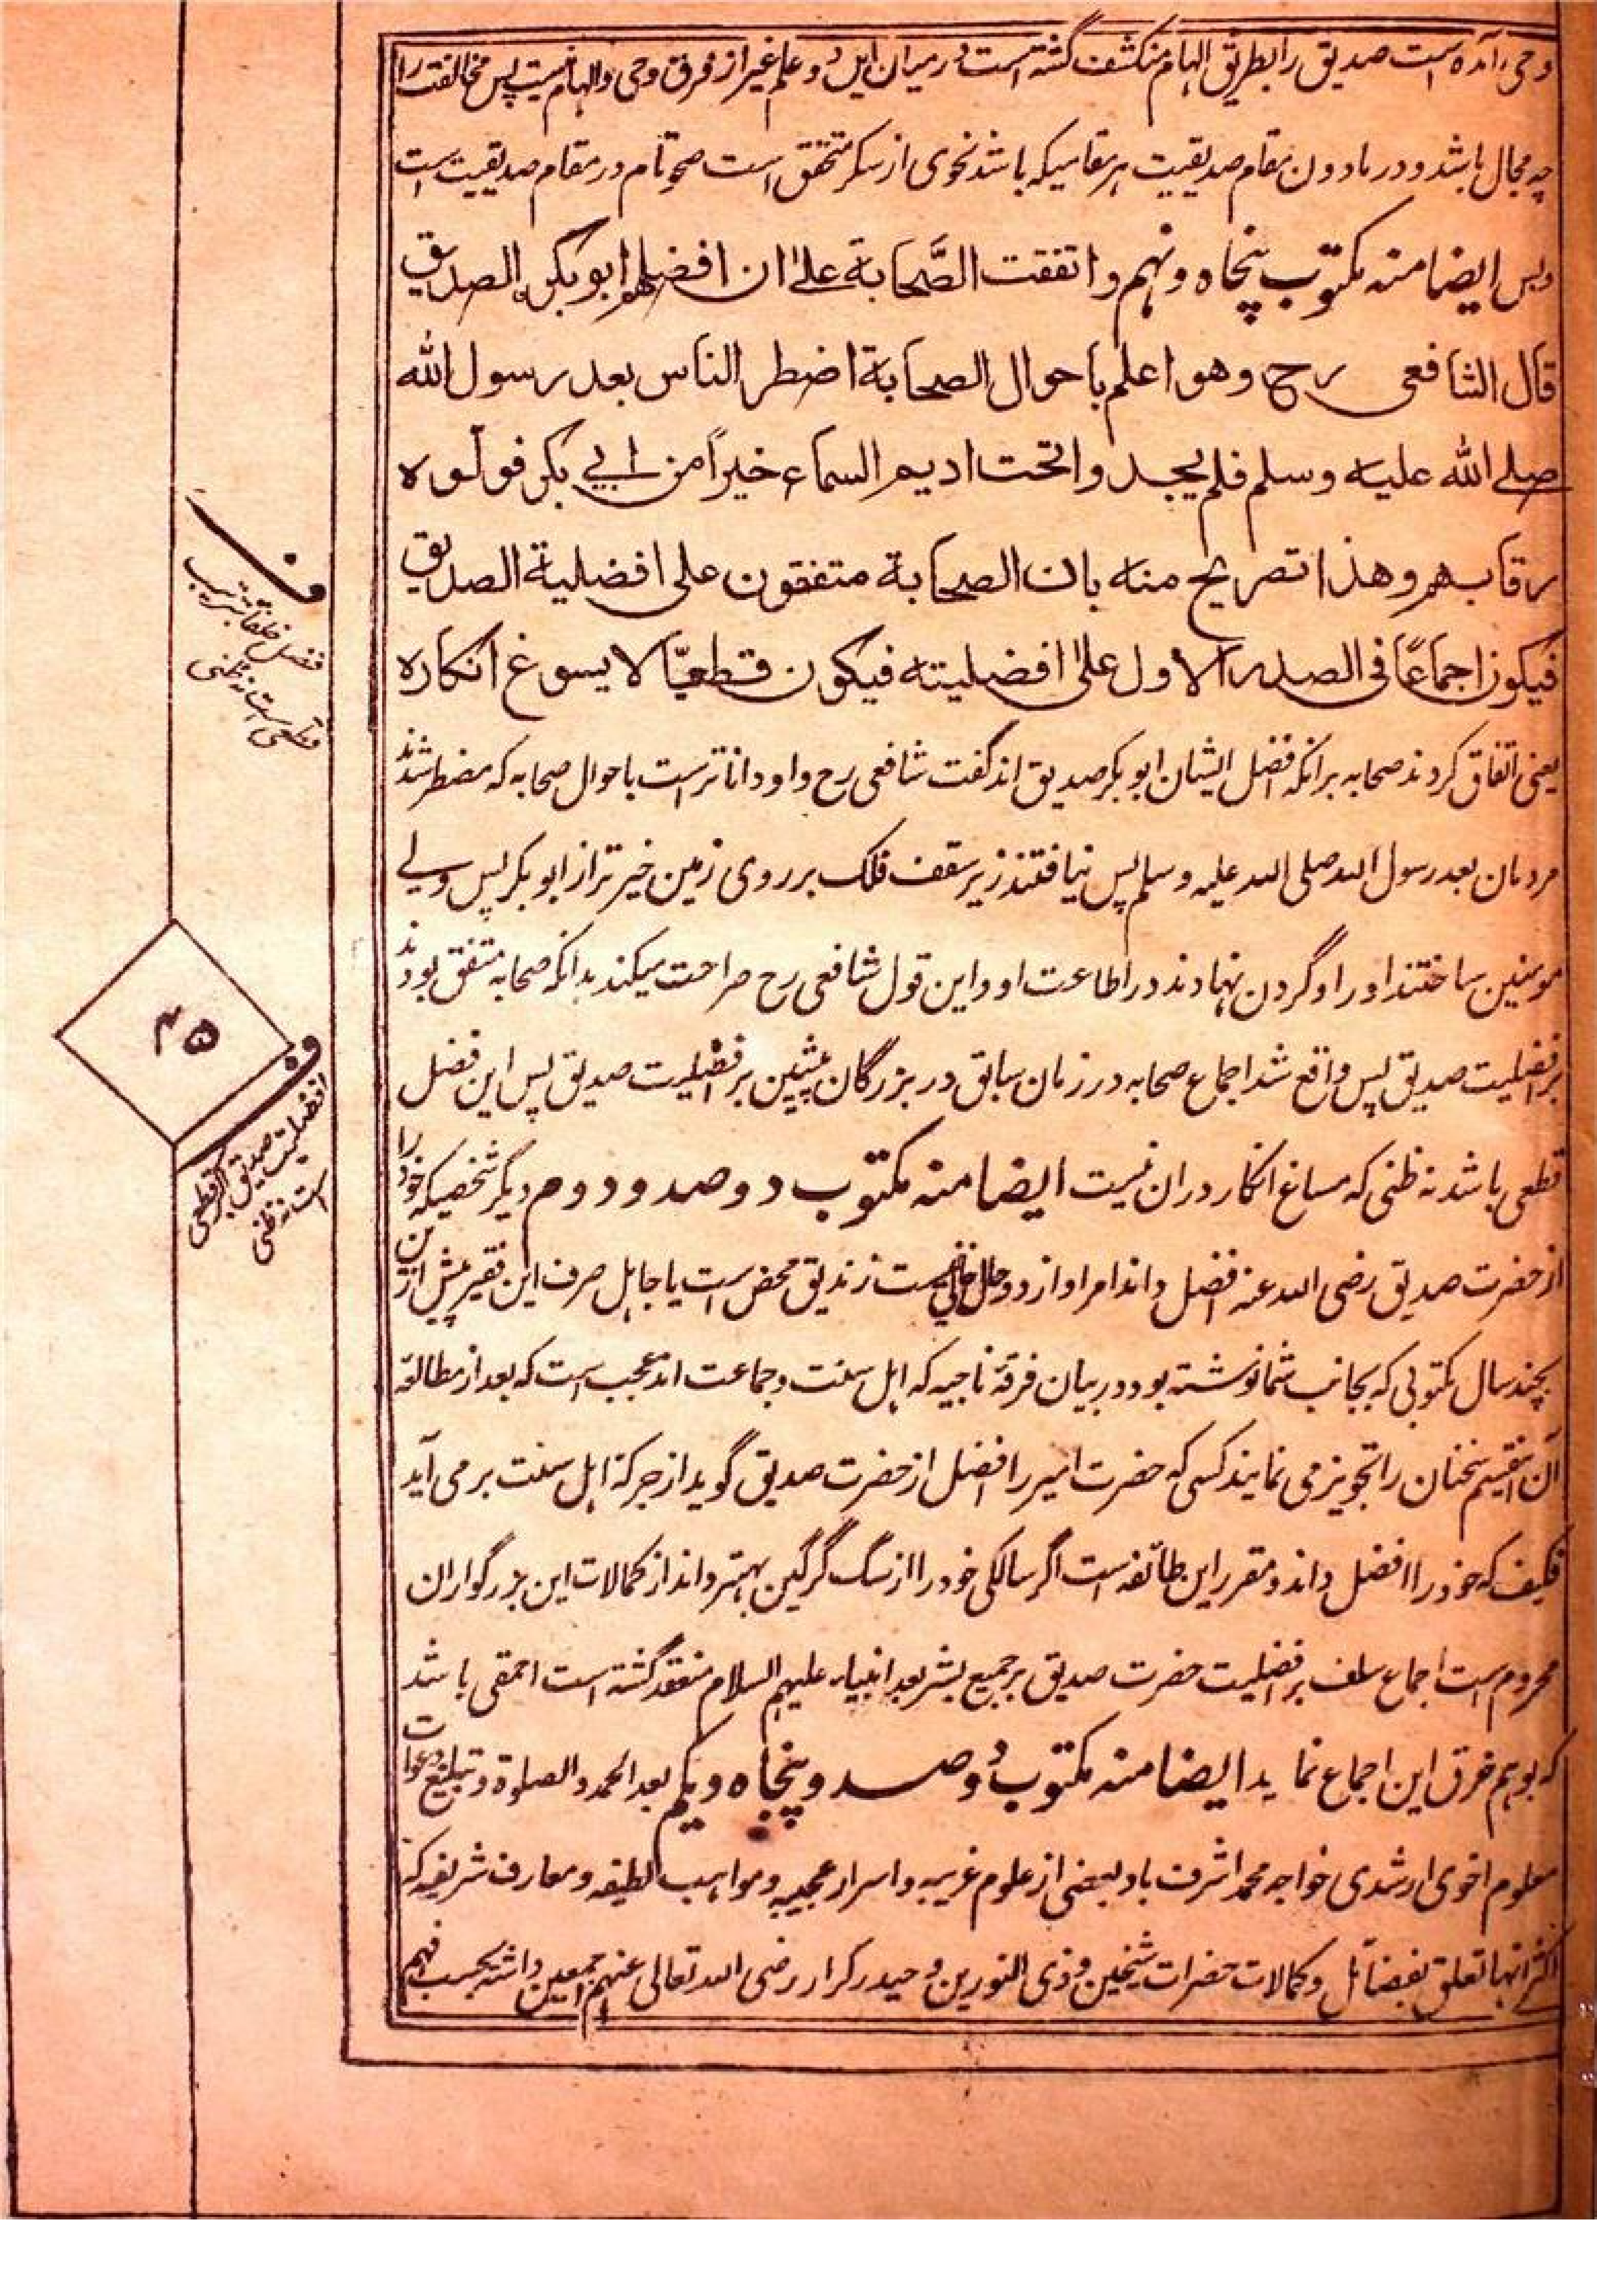 وحی آمده است صدیق را بطریق الهام منکشف گشته است در میان این دو علم غیر از فرق وحی و الهام نیست پس مخالفت را
چه مجال باشد و در مادون مقام صدیقیت هر مقامیکه باشد نحوی از سکر متحقق است صحو تام در مقام صدیقیت است
وبس ایضا منه مکتوب پنجاه ونهم واتفقت الصَّحابة علیٰ ان افضلهم ابوبکر الصدیق
قال الشافعی رح وهو اعلم باحوال الصحابة اضطر الناس بعد رسول الله
صلے الله علیه وسلم فلم یجدواتحت ادیم السماء خیراً من ابی بکر فولوه
رقابهم وهذا تصریح منه بان الصحابة متفقون علی افضلیة الصدیق
فیکون اجماعًا فی الصدر الاول علیٰ افضلیته فیکون قطعیًّا لا یسوغ انکاره
یعنی اتفاق کردند صحابه بر آنکه افضل ایشان ابوبکر صدیق اند گفت شافعی رح و او داناتر است باحوال صحابه که مضطر شدند
مردمان بعد رسول الله صلی الله علیه وسلم پس نیافتند زیر سقف فلک بر روی زمین خیر تر از ابوبکر پس ولے
مومنین ساختند او را و گردن نهادند در اطاعت او و این قول شافعی رح صراحت میکند بدانکه صحابه متفق بودند
بر افضلیت صدیق پس واقع شد اجماع صحابه در زمان سابق در بزرگان پیشین بر افضلیت صدیق پس این فضل
قطعی باشد نه ظنی که مساغ انکار در ان نیست ایضا منه مکتوب دو صد و دوم دیگر شخصیکه خود را
از حضرت صدیق رضی الله عنه افضل داند امر او از دو حال خالی نیست زندیق محض است یا جاهل صرف این فقیر پیش ازین
بچند سال مکتوبی که بجانب شما نوشته بود در بیان فرقهٔ ناجیه که اهل سنت و جماعت اند عجب است که بعد از مطالعهٔ
آن اینقسم سخنان را تجویز می نمایند کسی که حضرت امیر را افضل از حضرت صدیق گوید از جرگهٔ اهل سنت بر می آید
فکیف که خود را افضل داند و مقرر این طائفه است اگر سالکی خود را از سگ گرگین بهتر داند از کمالات این بزرگواران
محروم است اجماع سلف بر افضلیت حضرت صدیق بر جمیع بشر بعد انبیاء علیهم السلام منعقد گشته است احمقی باشد
که توهم خرق این اجماع نماید ایضا منه مکتوب دو صد و پنجاه و یکم بعد الحمد والصلوة و تبلیغ دعوات
معلوم اخوی ارشدی خواجه محمد اشرف باد بعضی از علوم غریبه و اسرار عجیبه و مواهب لطیفه و معارف شریفه که
اکثر انها تعلق بفضائل و کمالات حضرات شیخین و ذی النورین و حیدر کرار رضی الله تعالی عنهم اجمعین داشته بحسب فهم
ف
فضل خلفا بترتیب
قطعی است نه ظنی
۴۵
ف
افضلیت صدیق اکبر قطعی
است نه ظنی